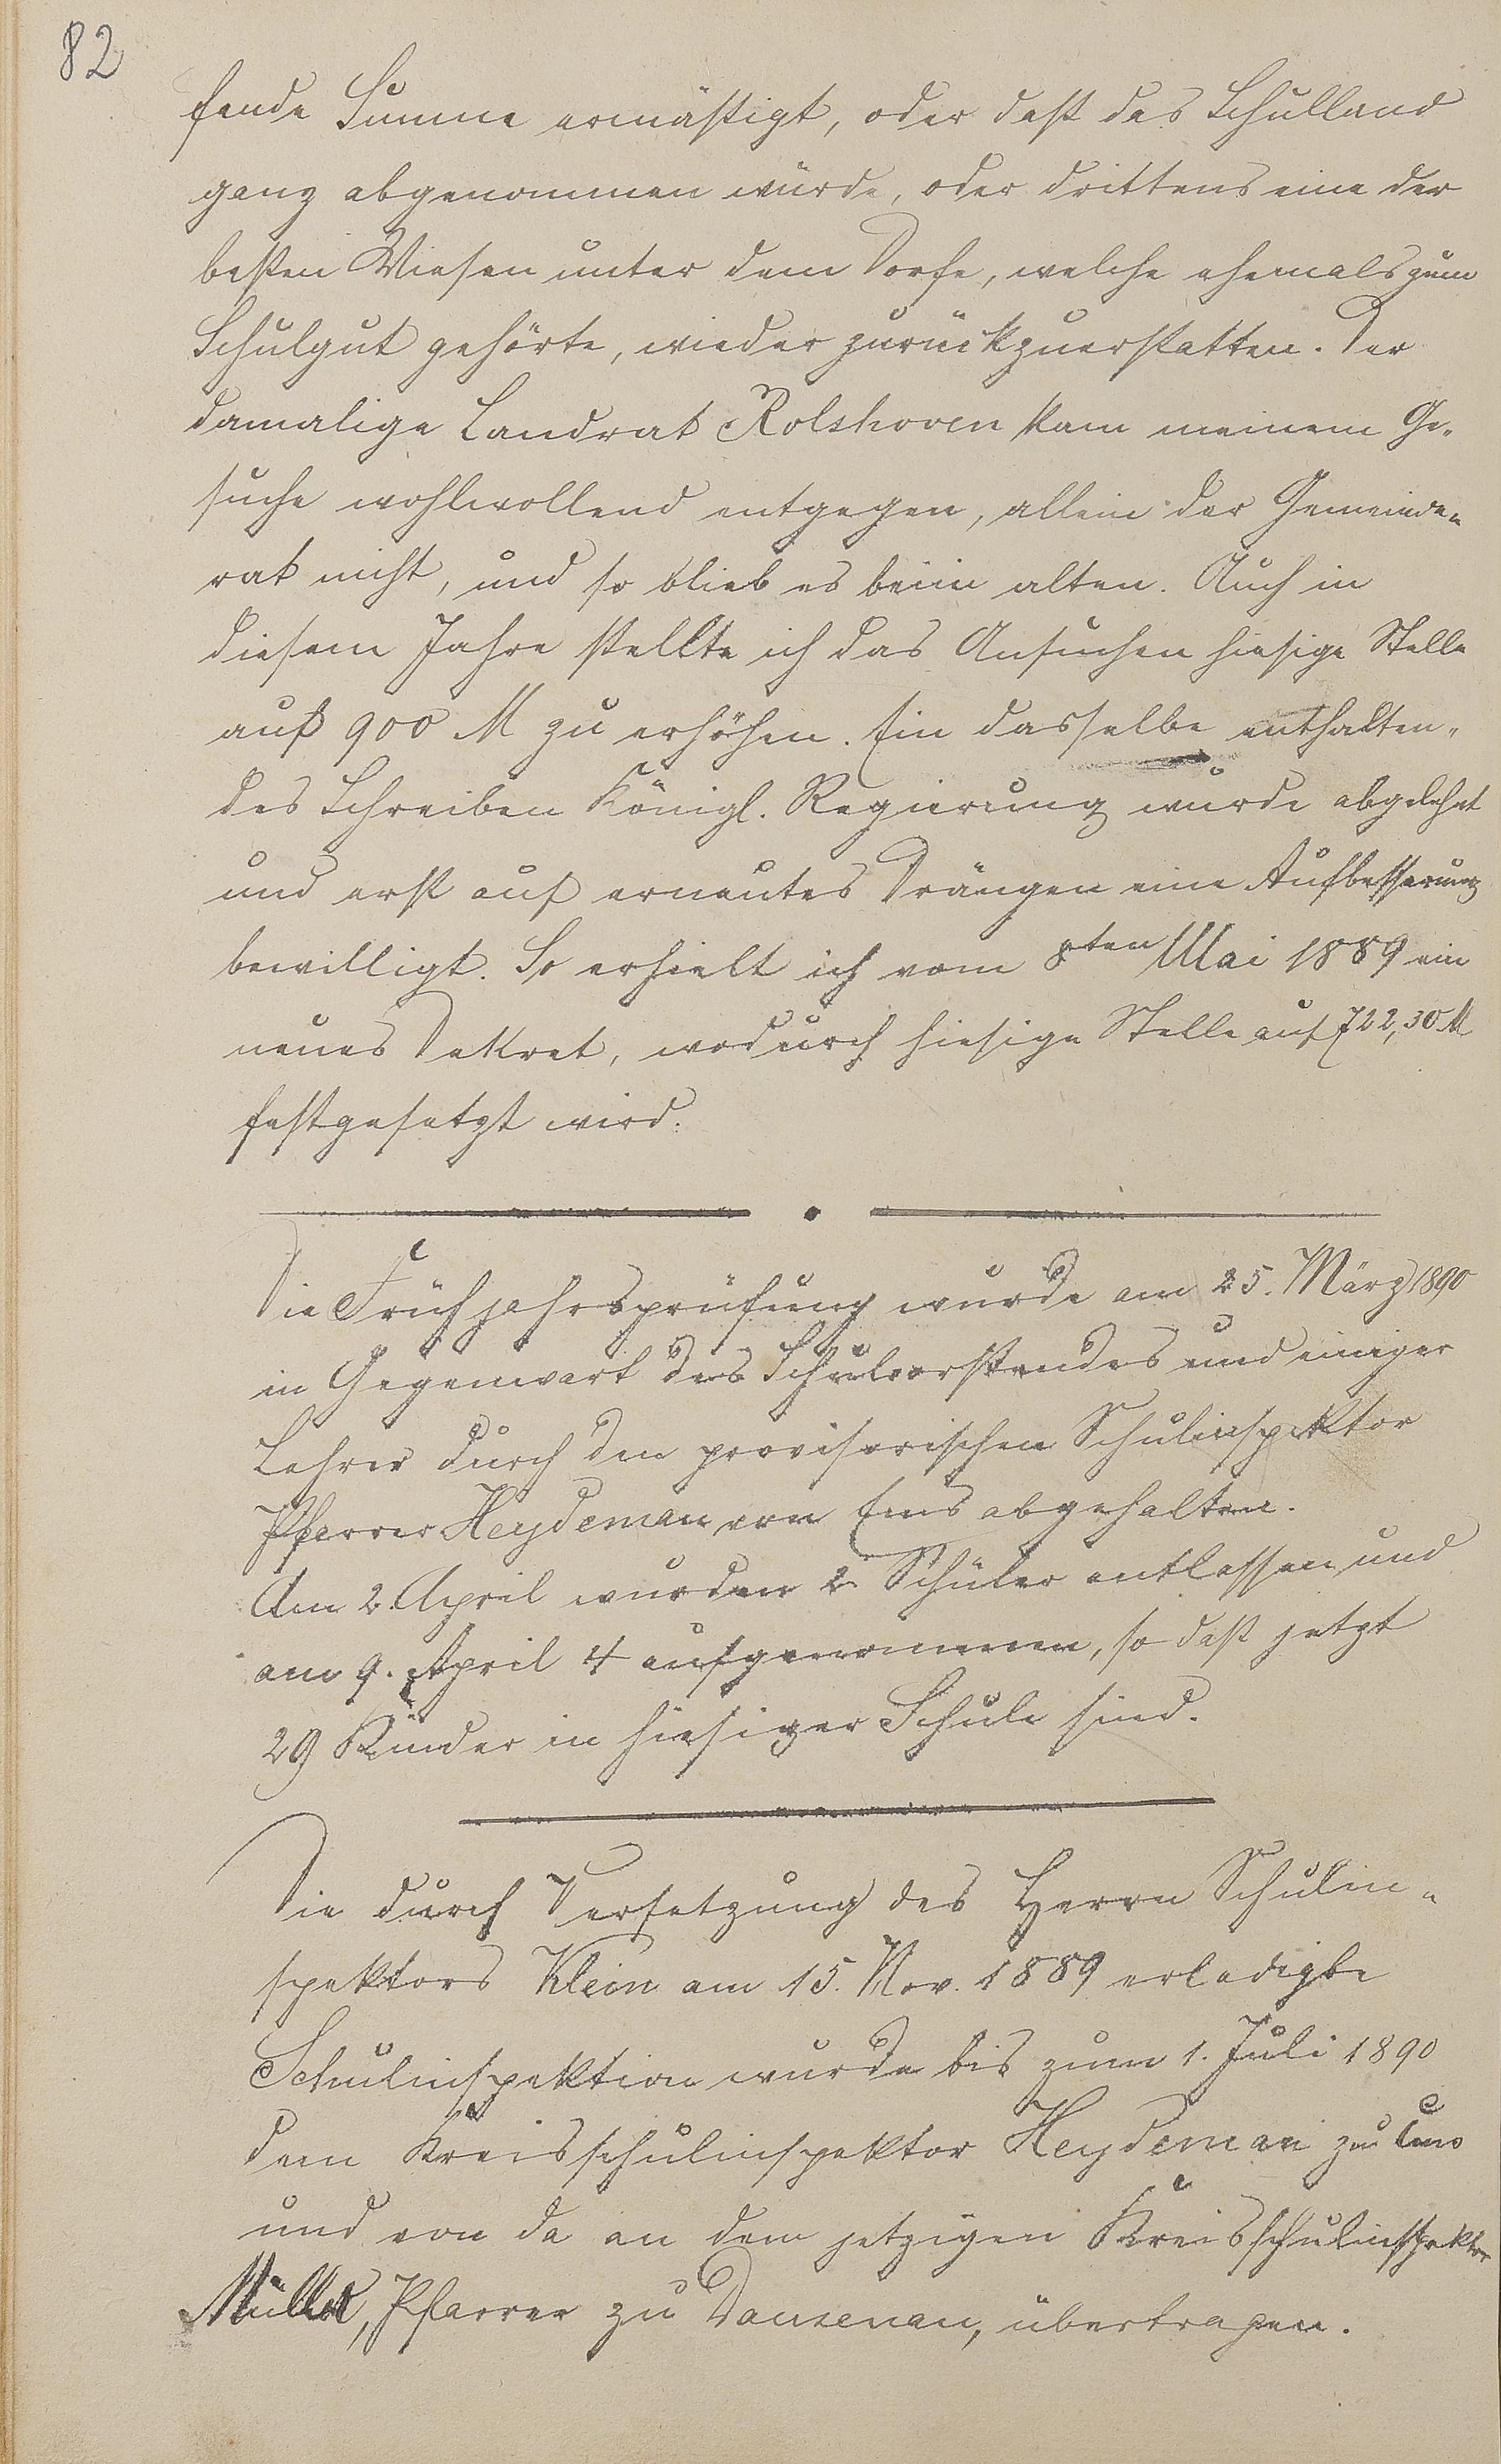 82
fende Summe ermäßigt, oder daß das Schulland
ganz abgenommen würde, oder drittens eine der
besten Wiesen unter dem Dorfe, welche ehemals zum
Schulgut gehörte, wieder zurückzuerstatten. Der
damalige Landrat Rolshoven kam meinem Ge-
suche wohlwollend entgegen, allein der Gemeinde-
rat nicht, und so blieb es beim alten. Auch in
diesem Jahre stellte ich das Ansuchen hiesige Stelle
auf 900 M zu erhöhen. Ein dasselbe enthalten-
des Schreiben Königl. Regierung wurde abgelehnt
und erst auf erneutes Drängen eine Aufbesserung
bewilligt. So erhielt ich vom 8ten Mai 1889 ein
neues Dekret, wodurch hiesige Stelle auf 722,30 M
festgesetzt wird.
Die Frühjahrsprüfung wurde am 25. März 1890
in Gegenwart des Schulvorstandes und einiger
Lehrer durch den provisorischen Schulinspektor
Pfarrer Heydeman von Ems abgehalten.
Am 2. April wurden 2 Schüler entlassen und
am 9. April 4 aufgenommen, so daß jetzt
29 Kinder in hiesiger Schule sind.
Die durch Versetzung des Herrn Schulin-
spektors Klein am 15. Nov. 1889 erledigte
Schulinspektion wurde bis zum 1. Juli 1890
dem Kreisschulinspektor Heydeman zu Ems
und von da an dem jetzigen Kreisschulinspektor
Müller, Pfarrer zu Dausenau, übertragen.